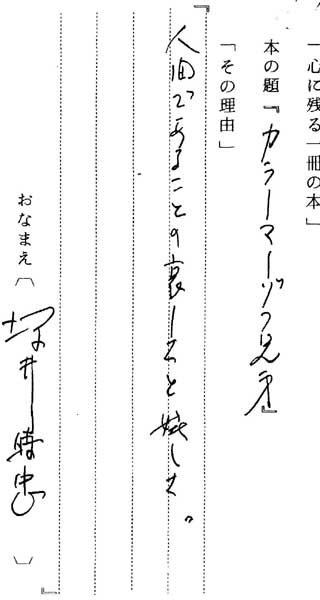 「心に残る一冊の本」
本の題『カラーマーゾフ兄弟』
「その理由」
『
人間であることの哀しさと嬉しさ。
おなまえ〔井時忠〕
』